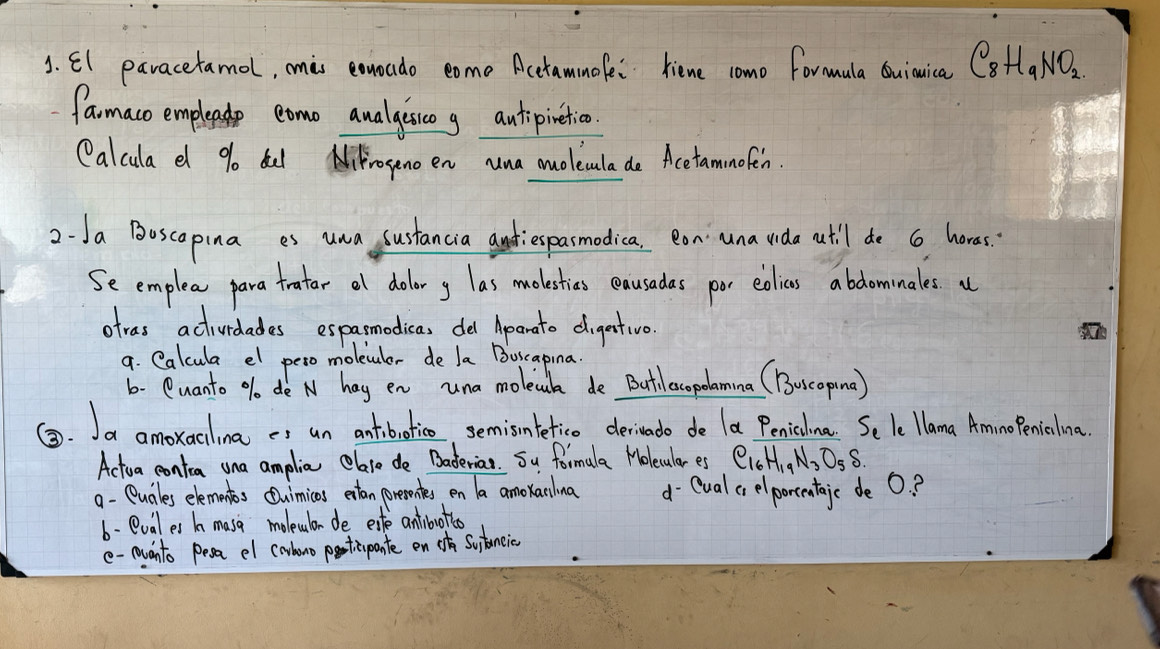 1. El paracetamol, más conocido como Acetaminofén tiene como formula Quimica C8H9NO2.
- farmaco empleado como analgésico y antipirético.
Calcula el % del Nitrogeno en una molécula de Acetaminofén.
2- La Buscapina es una sustancia antiespasmodica, con una vida util de 6 horas.
Se emplea para tratar el dolor y las molestias causadas por cólicos abdominales u
otras actividades espasmodicas del Aparato digestivo.
a. Calcula el peso molécular de la Buscapina.
b- Cuanto % de N hay en una molécula de Butilescopolamina (Buscapina)
3. La amoxacilina es un antibiotico semisintetico derivado de la Peniculina. Se le llama AminoPeniculina.
Actua contra una amplia clase de Bacterias. Su fórmula Molecular es C16H19N3O5S.
a- Cuáles elementos Químicos estan presentes en la amoxacilina
d- Cual es el porcentaje de O.?
b- Cuál es la masa molecular de este antibiotico
c- Cuánto pesa el carbono participante en esta Sustancia